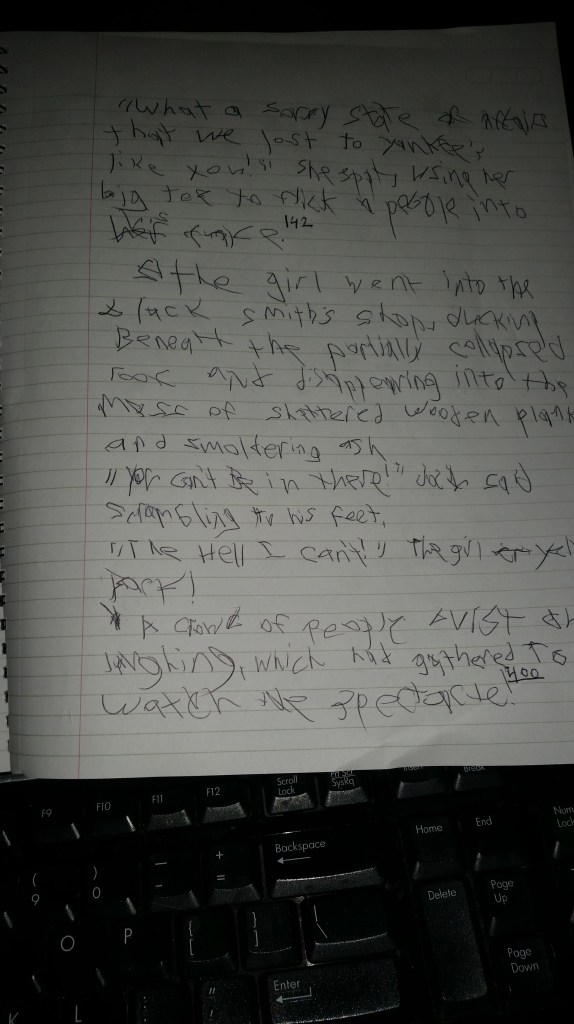 "What a sorry state of affairs
that we lost to yankee's
like you!" she spat, using her
big toe to flick a pebble into
his face. 142
the girl went into the
black smith's shop, ducking
Beneath the partially collapsed
roof and disappearing into the
mass of shattered wooden plank
and smoldering ash
"You can't Be in there!" said
scrambling to his feet.
"The Hell I can't!" The girl yell
back!
A crowd of people Burst
laughing, which had gathered to
watch the spectacle. 400
F9
F10
F11
F12
Scroll Lock
Prt Scr SysRq
Insert
Break
( 9
) 0
_ -
+ =
Backspace
Home
End
Num Loc
O
P
{ [
} ]
| \
Delete
Page Up
Page Down
K
L
: ;
" '
Enter